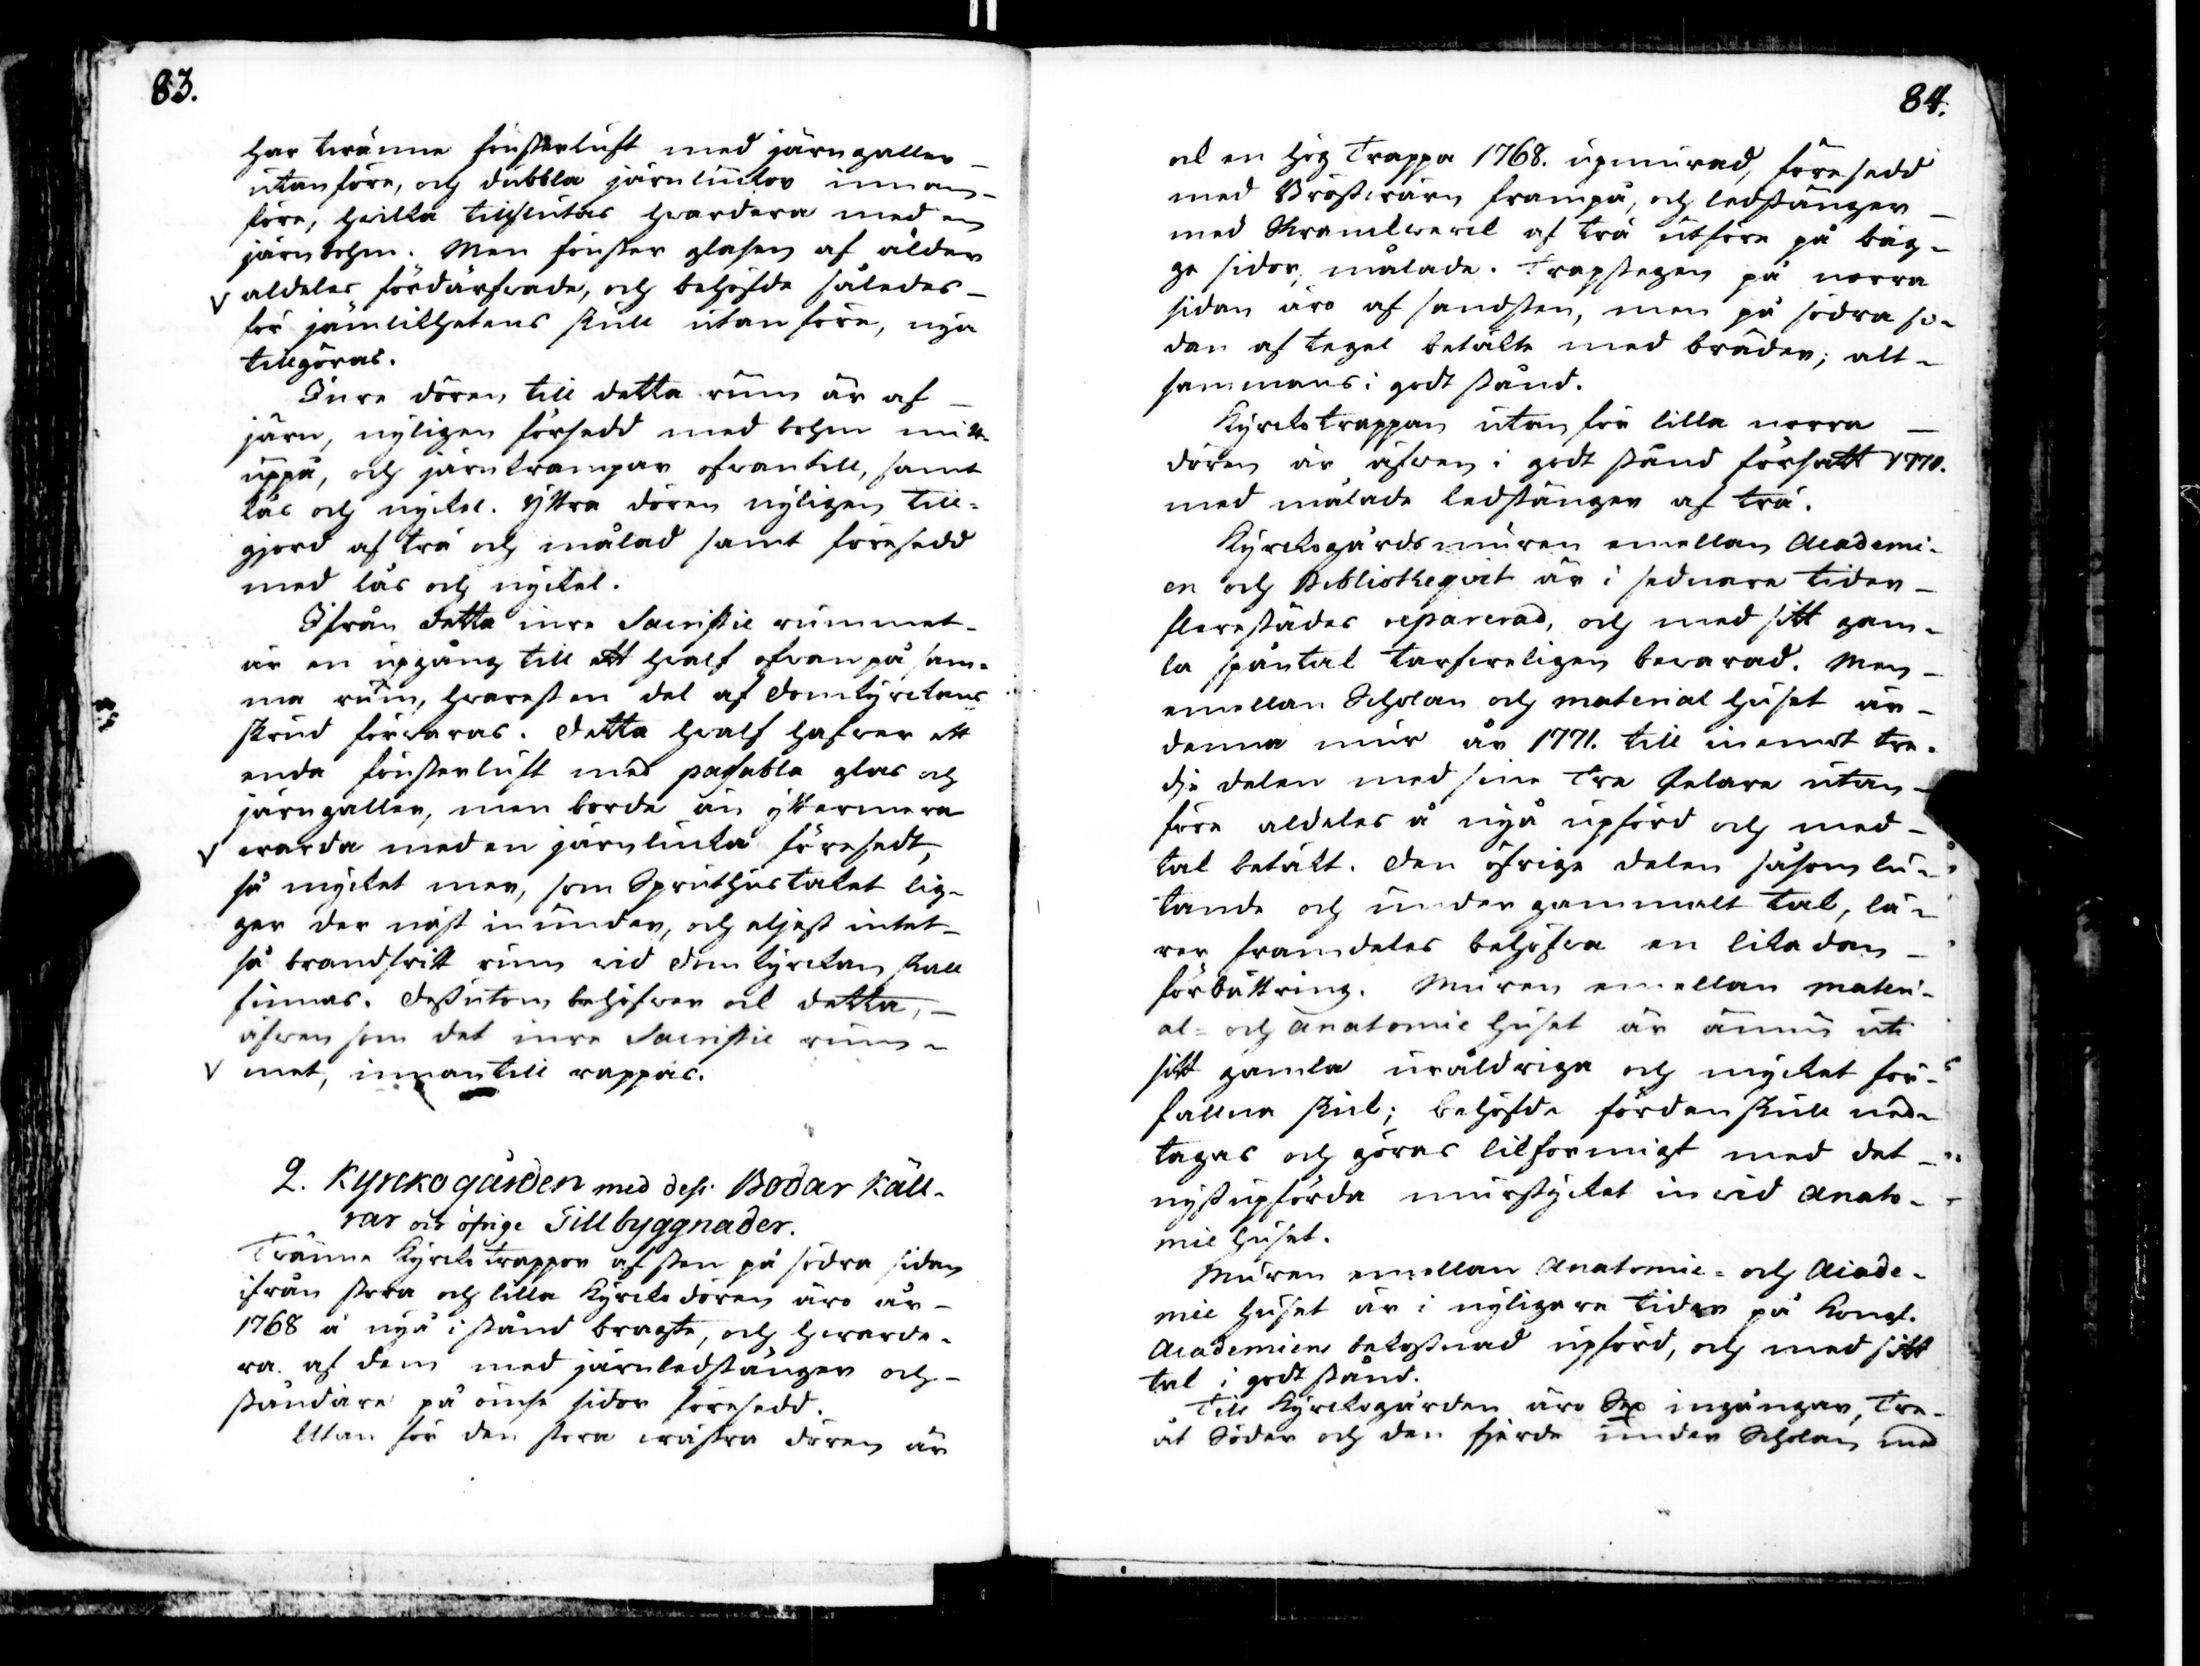 83.
har twänne fönsterluft med järngaller
utanföre, och dubbla järnluckor innan-
före, hvilka tillslutas hvardera med en
järnbohm. Men fönster glasen af ålder
v aldeles fördärfvade, och behöfde således
för jämlikhetens skull utanföre, nya
tillgöras.
Inre dören till detta rum är af
järn, nyligen försedd med bohm mitt-
uppå, och järnkrampar ofvantill, samt
lås och nyckel. Yttra dören nyligen till-
gjord af trä och målad samtföresedd
med lås och nyckel.
Ifrån detta inre Sacristie rummet
är en upgång till ett hvalf ofvanpå sam-
ma rum, hvarest en del af Domkyrckans
skrud förvaras. Detta hvalf hafver ett
enda fönsterluft med passabla glas och
järngaller, men borde än ytterm​era
v warda med en järnlucka föresedt,
så mycket mer, som Spruthustaket lig-
ger der näst inunder, och eljest intet
så brandfritt rum vid Domkyrckan skall
finnas. Dessutom behöfver ock detta,
äfven som det inre Sacristie rum-
v met, innantill rappas.
2. Kyrckogården med dess Bodar Käll-
rar och öfrige Tillbyggnader.
Twänne Kyrcko trappor af sten på södra sidan
ifrån stora och lilla Kyrcko dören äro år
1768 å nyå i stånd bragte, och hvarde-
ra af dem med järnledstänger och
ståndare på ömse sidor föresedd.
Utan för den stora wästra dören är
84.
ock en hög Trappa 1768. upmurad, föresedd
med Bröstwärn frampå, och ledstänger
med Skranckverck af trä utföre på bäg-
ge sidor, målade. Trapstegen på norra
sidan äro af sandsten, men på södra si-
dan af tegel betäkte med bräder; alt-
sammans i godt stånd.
Kyrckotrappan utanför lilla norra
dören är äfven i godt stånd försatt 1770.
med målade ledstänger af trä.
Kyrckogårdsmuren emellan Academi-
en och Bibliotheqvet är i sednare tider
flerestädes reparerad, och med sitt gam-
la spåntak tarfveligen bevarad. Men
emellan Scholan och material huset är
denna mur år 1771. till inemot tre-
die delen med sine Tre Pelare utan-
före aldeles å nyå upförd och med
tak betäkt. Den öfrige delen såsom lu-
tande och under gammalt Tak, lä-
rer framdeles behöfva en likadan
förbättring. Muren emellan materi-
al- och Anatomie huset är ännu uti
sitt gamla uråldriga och mycket för-
fallna skick; behöfde fördenskull ned-
tagas och göras likformigt med det
nyssupförda murstycket invid Anato-
mie huset.
Muren emellan Anatomie- och Acade-
mie huset är i nyligare tider på Kongl.
Academiens bekostnad upförd, och med sitt
tak i godt stånd.
Till Kyrckogården äro Sex ingångar, Tre
åt Söder och den fjerde under Scholan med